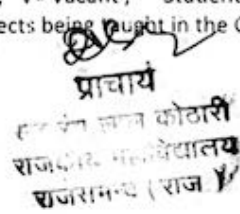 Vacant, Student
ects being taught in the
प्राचार्य
लाल कोठारी
राजकीय महाविद्यालय
राजसमन्द (राज